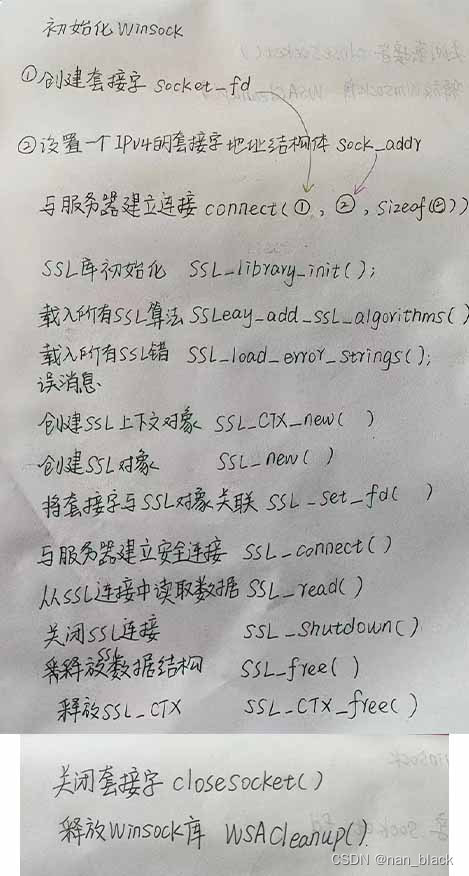 初始化Winsock
①创建套接字 socket-fd
②设置一个IPv4的套接字地址结构体 sock_addr
与服务器建立连接 connect(①, ②, sizeof(②))
SSL库初始化 SSL_library_init();
载入所有SSL算法 SSLeay_add_SSL_algorithms()
载入所有SSL错 SSL_load_error_strings();
误消息
创建SSL上下文对象 SSL_CTX_new( )
创建SSL对象 SSL_new( )
将套接字与SSL对象关联 SSL_set_fd( )
与服务器建立安全连接 SSL_connect()
从SSL连接中读取数据 SSL_read()
关闭SSL连接 SSL_Shutdown()
释放SSL数据结构 SSL_free( )
释放SSL_CTX SSL_CTX_free()
关闭套接字 closesocket()
释放Winsock库 WSACleanup().
CSDN @nan_black